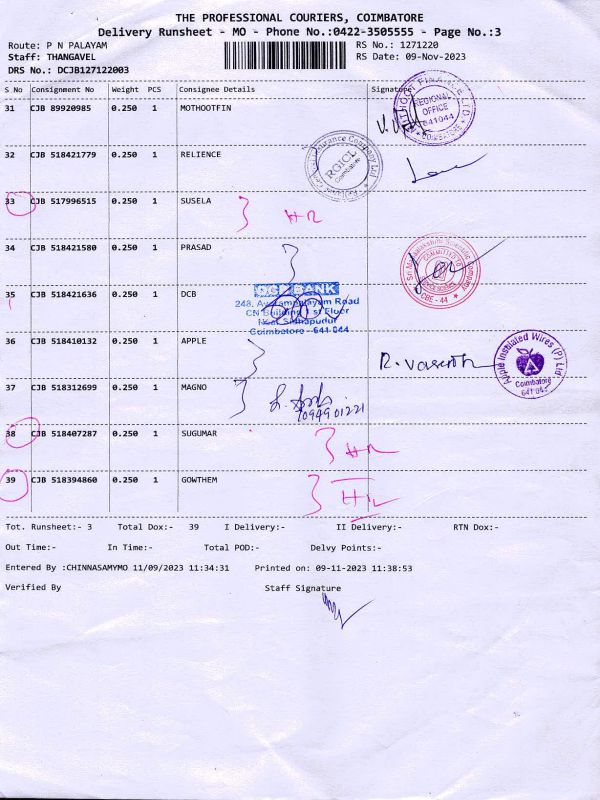 THE PROFESSIONAL COURIERS, COIMBATORE
Delivery Runsheet - MO - Phone No.:0422-3505555 - Page No.:3
Route: P N PALAYAM RS No.: 1271220
Staff: THANGAVEL RS Date: 09-Nov-2023
DRS No.: DCJB127122003
S No Consignment No Weight PCS Consignee Details Signature
31 CJB 89920985 0.250 1 MOTHOOTFIN
REGIONAL
OFFICE
641044
COIMBATORE
32 CJB 518421779 0.250 1 RELIENCE
RGICL
33 CJB 517996515 0.250 1 SUSELA
34 CJB 518421580 0.250 1 PRASAD
CBE - 44
35 CJB 518421636 0.250 1 DCB
BANK
CN Building 1 st Floor
Coimbatore - 641 044
36 CJB 518410132 0.250 1 APPLE
R. Vasanth
Apple Insulated Wires (P) Ltd
Coimbatore
641 044
37 CJB 518312699 0.250 1 MAGNO
38 CJB 518407287 0.250 1 SUGUMAR
39 CJB 518394860 0.250 1 GOWTHEM
Tot. Runsheet:- 3 Total Dox:- 39 I Delivery:- II Delivery:- RTN Dox:-
Out Time:- In Time:- Total POD:- Delvy Points:-
Entered By :CHINNASAMYMO 11/09/2023 11:34:31 Printed on: 09-11-2023 11:38:53
Verified By Staff Signature